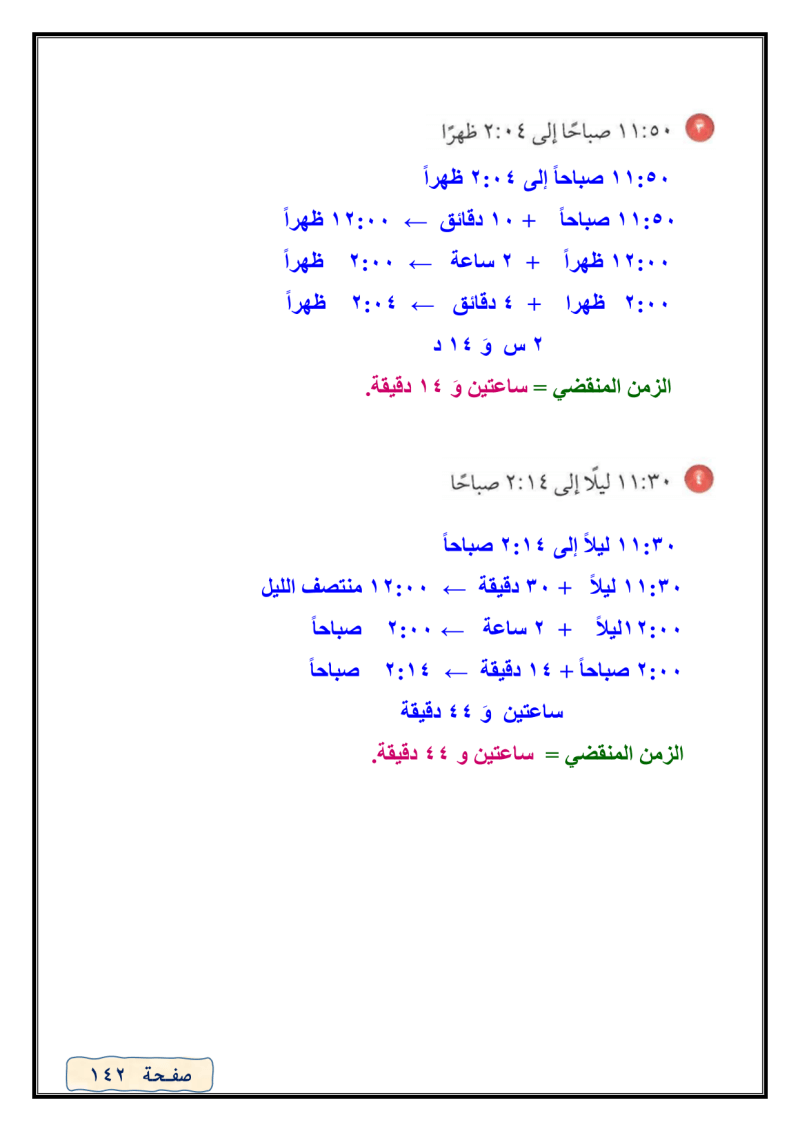 ٣ ١١:٥٠ صباحًا إلى ٢:٠٤ ظهرًا
١١:٥٠ صباحاً إلى ٢:٠٤ ظهراً
١١:٥٠ صباحاً + ١٠ دقائق ← ١٢:٠٠ ظهراً
١٢:٠٠ ظهراً + ٢ ساعة ← ٢:٠٠ ظهراً
٢:٠٠ ظهرا + ٤ دقائق ← ٢:٠٤ ظهراً
٢ س وَ ١٤ د
الزمن المنقضي = ساعتين وَ ١٤ دقيقة.
٤ ١١:٣٠ ليلًا إلى ٢:١٤ صباحًا
١١:٣٠ ليلاً إلى ٢:١٤ صباحاً
١١:٣٠ ليلاً + ٣٠ دقيقة ← ١٢:٠٠ منتصف الليل
١٢:٠٠ليلاً + ٢ ساعة ← ٢:٠٠ صباحاً
٢:٠٠ صباحاً + ١٤ دقيقة ← ٢:١٤ صباحاً
ساعتين وَ ٤٤ دقيقة
الزمن المنقضي = ساعتين و ٤٤ دقيقة.
صفحة ١٤٢